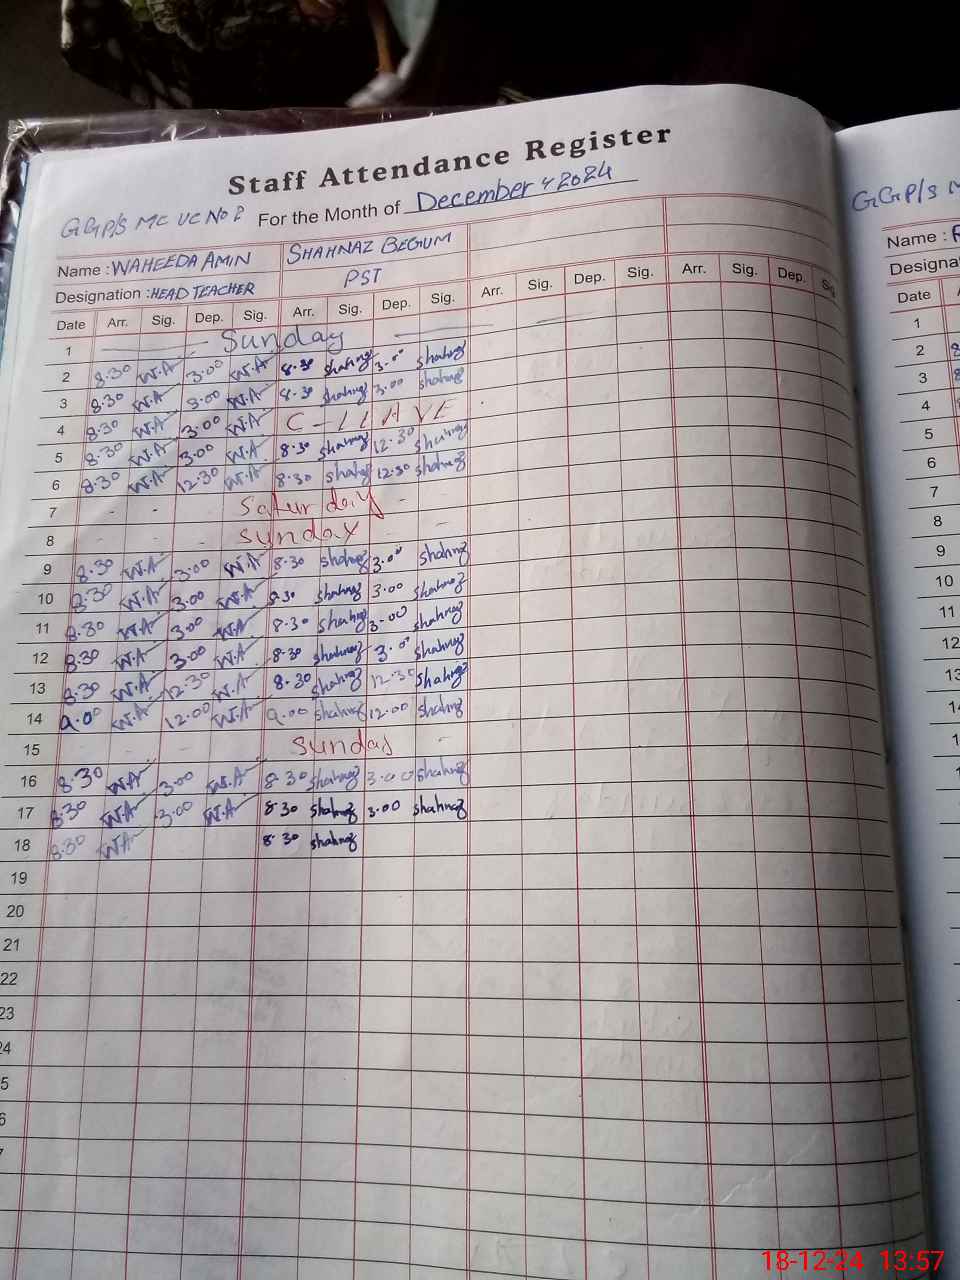 Staff Attendance Register
GGP/S MC UC No 2 For the Month of December, 2024
Name : WAHEEDA AMIN SHAHNAZ BEGUM
Designation : HEAD TEACHER PST
Date Arr. Sig. Dep. Sig. Arr. Sig. Dep. Sig. Arr. Sig. Dep. Sig. Arr. Sig. Dep. Sig.
1 Sunday
2 8.30 W.A 3.00 W.A 8.30 shahnaz 3.00 shahnaz
3 8.30 W.A 3.00 W.A 8.30 shahnaz 3.00 shahnaz
4 8.30 W.A 3.00 W.A C-LEAVE
5 8.30 W.A 3.00 W.A 8.30 shahnaz 12.30 shahnaz
6 8.30 W.A 12.30 W.A 8.30 shahnaz 12.30 shahnaz
7 - - Saturday - -
8 - - Sunday -
9 8.30 W.A 3.00 W.A 8.30 shahnaz 3.00 shahnaz
10 8.30 W.A 3.00 W.A 8.30 shahnaz 3.00 shahnaz
11 8.30 W.A 3.00 W.A 8.30 shahnaz 3.00 shahnaz
12 8.30 W.A 3.00 W.A 8.30 shahnaz 3.00 shahnaz
13 8.30 W.A 12.30 W.A 8.30 shahnaz 12.30 shahnaz
14 9.00 W.A 12.00 W.A 9.00 shahnaz 12.00 shahnaz
15 - - - Sunday -
16 8.30 W.A 3.00 W.A 8.30 shahnaz 3.00 shahnaz
17 8.30 W.A 3.00 W.A 8.30 shahnaz 3.00 shahnaz
18 8.30 W.A 8.30 shahnaz
19
20
21
22
23
24
GGP/S
Name :
Designa
Date
1
2
3
4
5
6
7
8
9
10
11
12
18-12-24 13:57